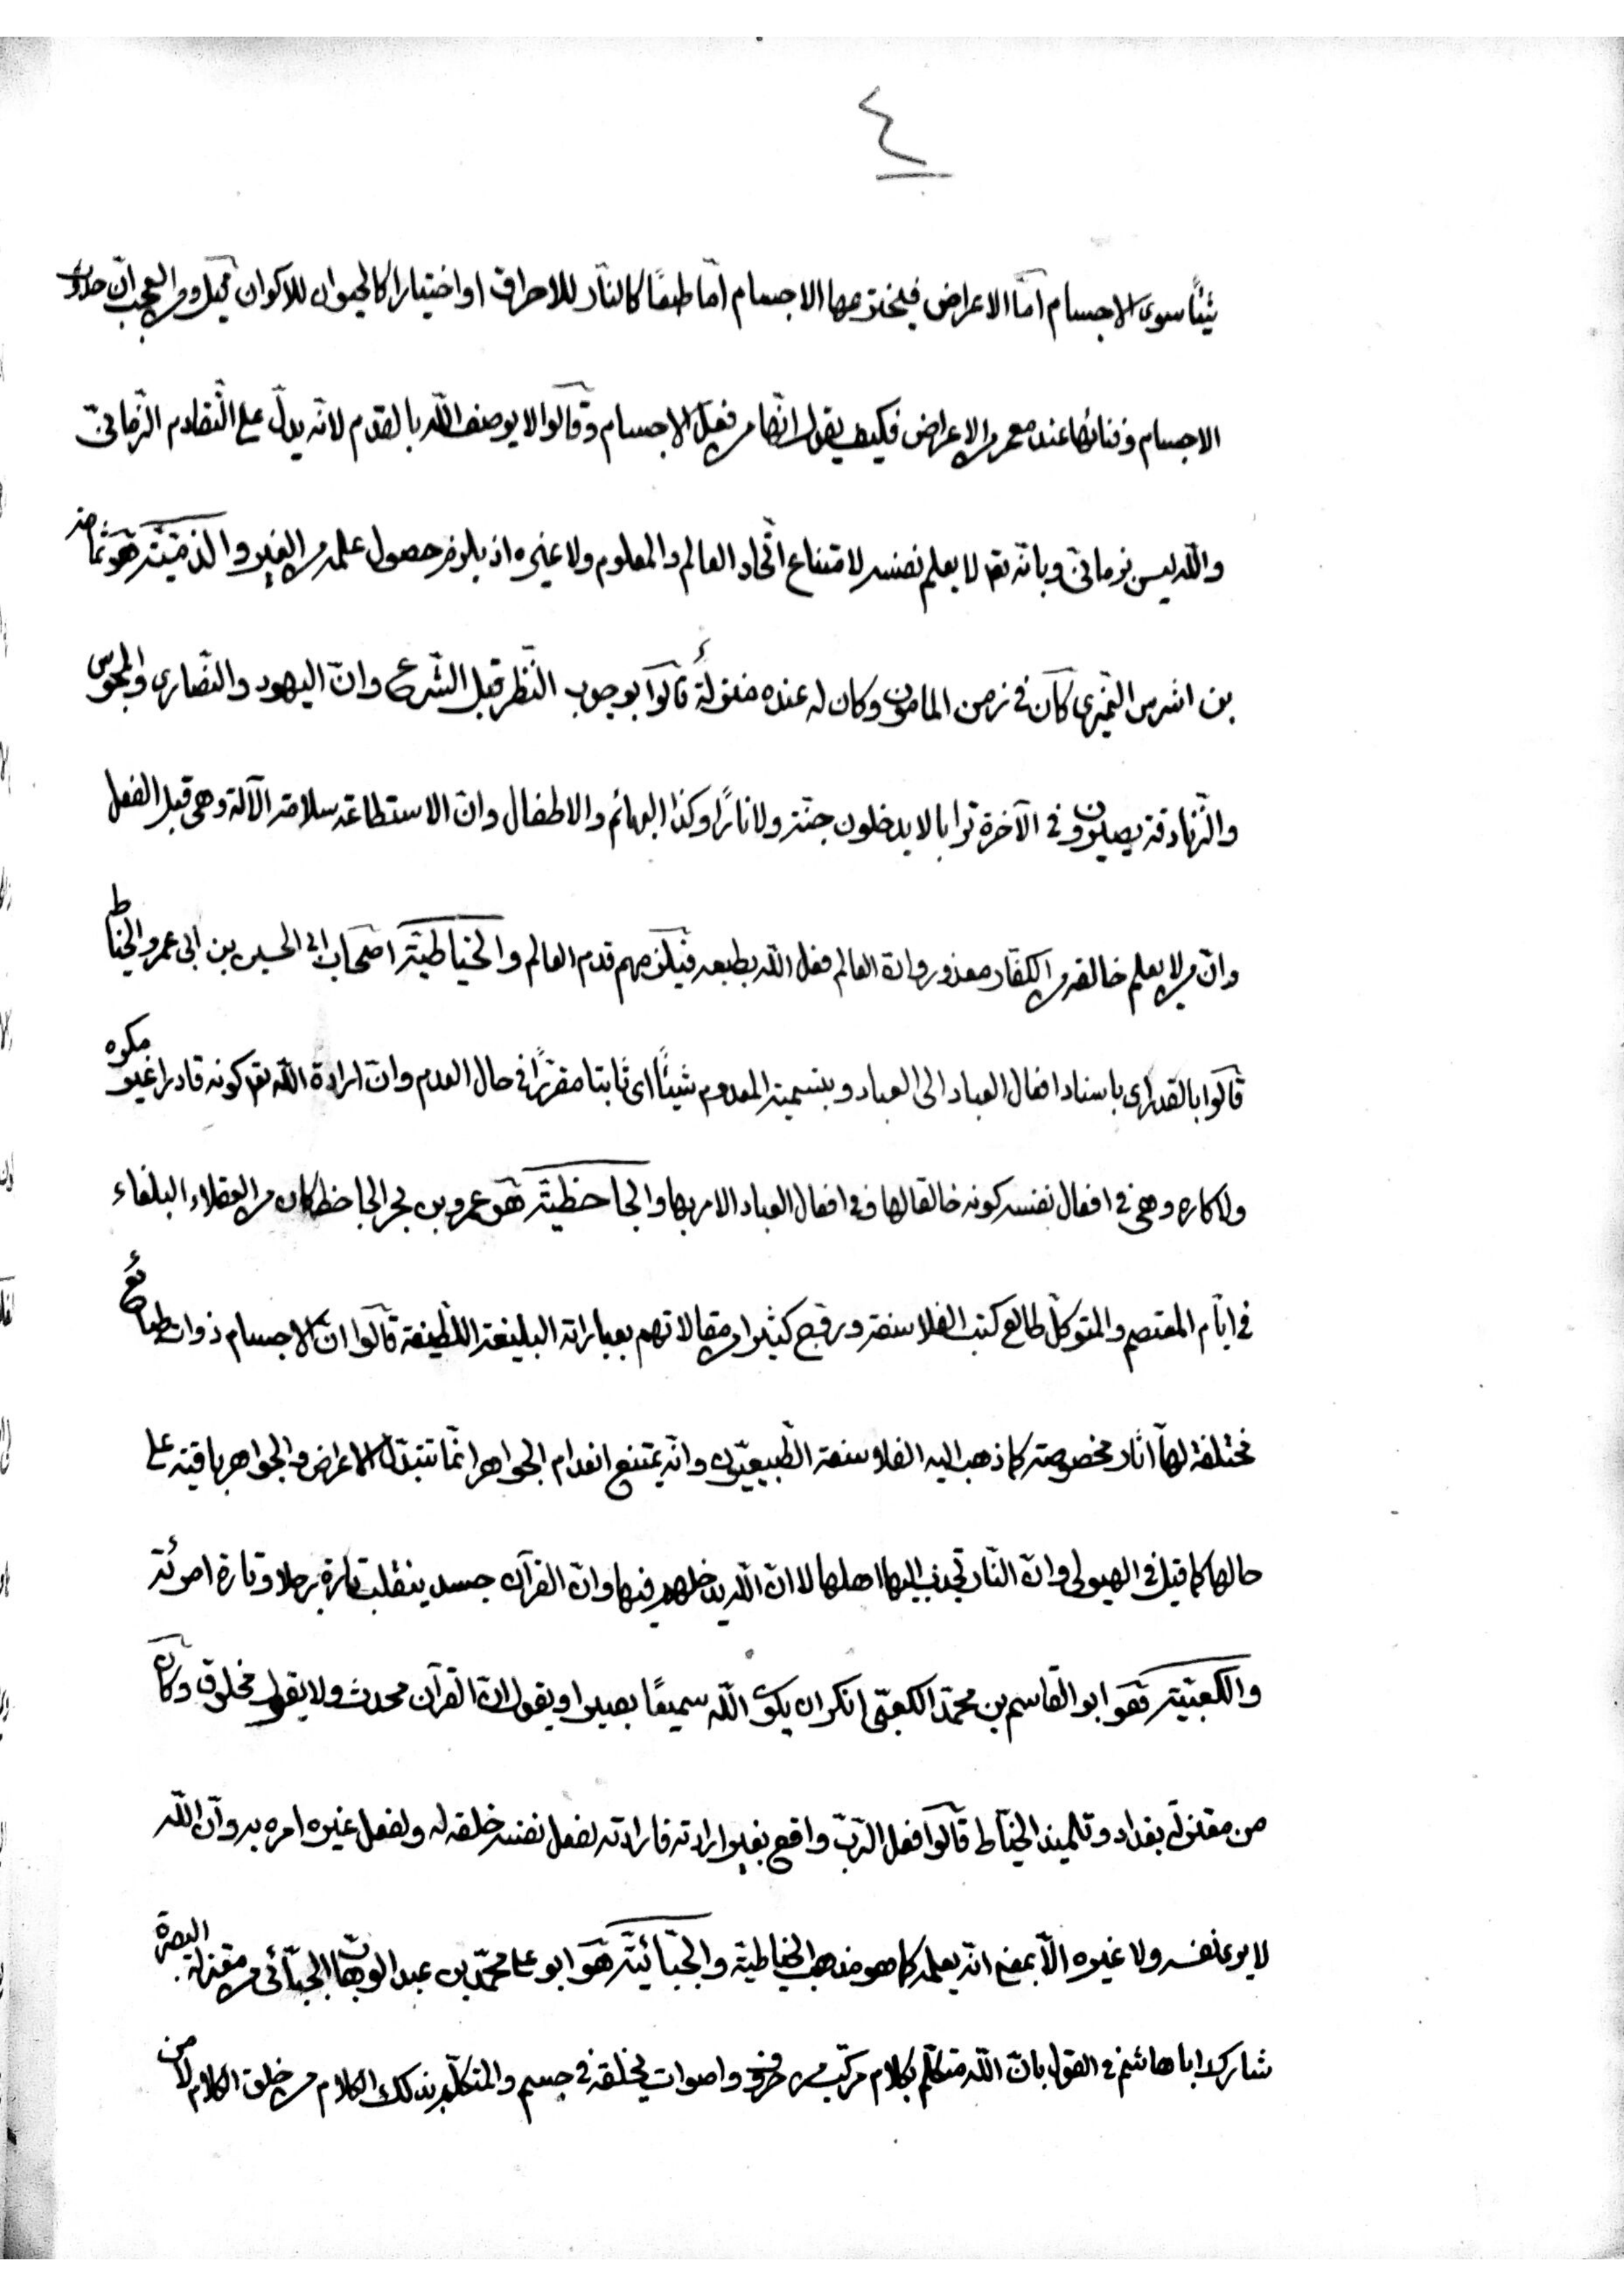 ٤
شيئًا سوى الاجسام امّا الاعراض فيخترعها الاجسام امّا طبعًا كالنار للاحراق او اختيارا كالحيوان للاكوان قيل ومن العجب انّ حدوث
الاجسام وفنائها عند معمر من الاعراض فكيف يقول انّها من فعل الاجسام وقالوا لا يوصف اللّه بالقدم لانّه يدلّ على التّقادم الزّمانىّ
واللّه ليس بزمانىّ وبانّه تع لا يعلم نفسه لامتناع اتّحاد العالم والمعلوم ولا غيره اذ يلزم حصول علمه من الغير والـ هو ثمامة
بن اشرس النّميرى كان فى زمن المامون وكان له عنده منزلة قالوا بوجوب النّظر قبل الشّرع وانّ اليهود والنّصارى والمجوس
والزّنادقة يصيرون فى الآخرة ترابا لا يدخلون جنّة ولا نارًا وكذا البهائم والاطفال وانّ الاستطاعة سلامة الآلة وهى قبل الفعل
وانّ من لا يعلم خالقه من الكفّار معذور وانّ العالم فعل اللّه بطبعه فيلزمهم قدم العالم والخياطيّة اصحاب ابى الحسين بن ابى عمرو الخيّاط
قالوا بالقدر اى باسناد افعال العباد الى العباد وبتسمية المعدوم شيئًا اى ثابتا متقررًا فى حال العدم وانّ ارادة اللّه تع كونه قادرا غير مكره
ولا كاره وهى فى افعال نفسه كونه خالقا لها وفى افعال العباد الامر بها والجاحظيّة هو عمرو بن بحر الجاحظ كان من العقلاء البلغاء
فى ايّام المعتصم والمتوكّل طالع كتب الفلاسفة وروّج كثيرا من مقالاتهم بعباراته البليغة اللّطيفة قالوا انّ الاجسام ذوات طبائع
مختلفة لها آثار مخصوصة كما ذهب اليه الفلاسفة الطّبيعيّون وانّه يمتنع انعدام الجواهر انّما تتبدّل الاعراض والجواهر باقية على
حالها كما قيل فى الهيولى وانّ النّار تجذب اليها اهلها لا انّ اللّه يدخلهم فيها وانّ القرآن جسد ينقلب تارة رجلا وتارة امرئة
والكعبيّة فهو ابو القاسم بن محمّد الكعبىّ انكر ان يكون اللّه سميعًا بصيرا ويقول انّ القرآن محدث ولا يقول مخلوق وكان
من معتزلى بغداد وتلميذ الخيّاط قالوا فعل الرّبّ واقع بغير ارادته فارادته لفعل نفسه خلقه له ولفعل غيره امره به وانّ اللّه
لا يرى نفسه ولا غيره الّا بمعنى انّه يعلمه كما هو مذهب الخياطيّة والجبّائيّة هو ابو على محمّد بن عبد الوهّاب الجبّائى من معتزلة البصرة
شارك ابا هاشم فى القول بانّ اللّه متكلّم بكلام مركّب من حروف واصوات يخلقه فى جسم والمتكلّم بذلك الكلام من خلق الكلام لا من